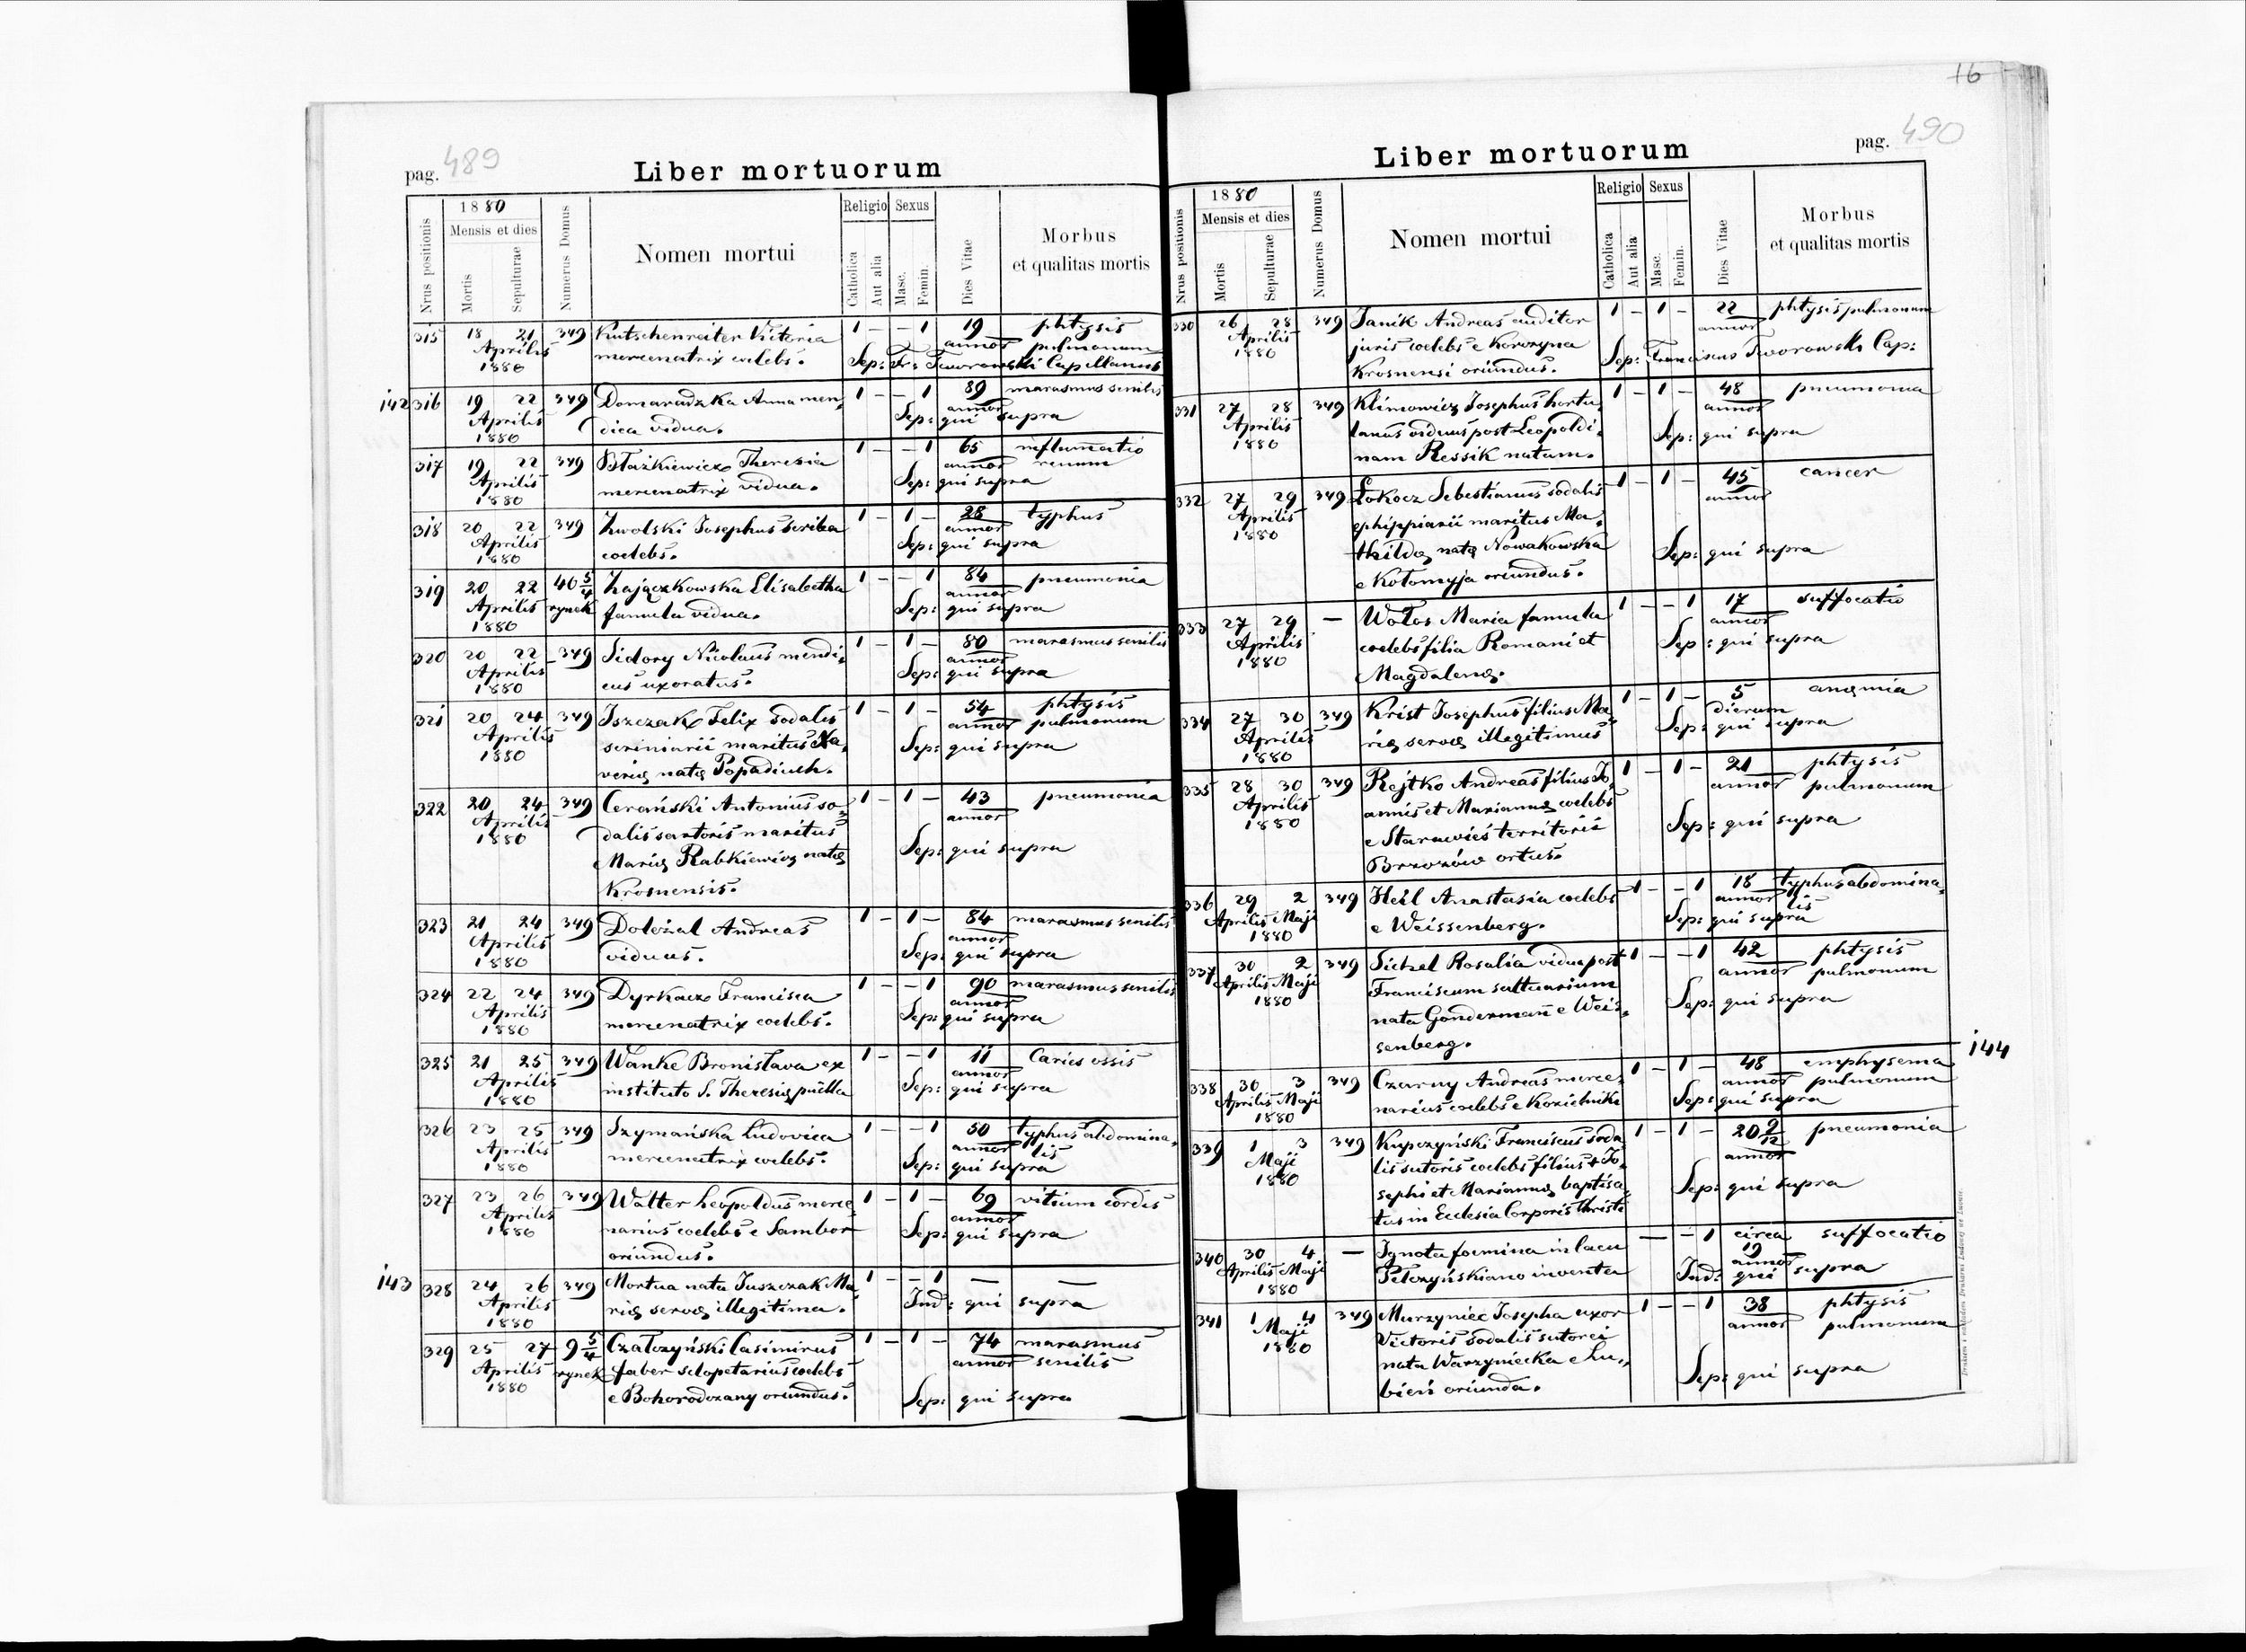 16
pag. 489
Liber mortuorum
Nrus positionis
1880
Mensis et dies
Mortis
Sepulturae
Numerus Domus
Nomen mortui
Religio
Catholica
Aut alia
Sexus
Masc.
Femin.
Dies Vitae
Morbus
et qualitas mortis
315 18 21 349 Kutschenreiter Victoria 1 – – 1 19 phtysis
Aprilis mercenatrix coelebs. annor pulmonum
1880 Sep: Fr: Tworowski Capellanus
142 316 19 22 349 Domaradzka Anna men, 1 – – 1 89 marasmus senilis
Aprilis dica vidua. annor
1880 Sep: qui supra
317 19 22 349 Błażkiewicz Theresia 1 – – 1 65 inflamatio
Aprilis mercenatrix vidua. annor renum
1880 Sep: qui supra
318 20 22 349 Zwolski Josephus scriba 1 – 1 – 28 typhus
Aprilis coelebs. annor
1880 Sep: qui supra
319 20 22 40 5/4 Zajączkowska Elisabetha 1 – – 1 84 pneumonia
Aprilis rynek famula vidua. annor
1880 Sep: qui supra
320 20 22 349 Sidory Nicolaus mendi, 1 – 1 – 80 marasmus senilis
Aprilis cus uxoratus. annor
1880 Sep: qui supra
321 20 24 349 Iszczak Felix sodalis 1 – 1 – 54 phtysis
Aprilis scriniarii maritus Xa, annor pulmonum
1880 verię natę Popadiuch. Sep: qui supra
322 20 24 349 Cerański Antonius so 1 – 1 – 43 pneumonia
Aprilis dalis sartoris maritus annor
1880 Marię Rabkiewicz natę Sep: qui supra
Krosnensis.
323 21 24 349 Doleżal Andreas 1 – 1 – 84 marasmus senilis
Aprilis viduus. annor
1880 Sep: qui supra
324 22 24 349 Dyrkacz Francisca 1 – – 1 90 marasmus senilis
Aprilis mercenatrix coelebs. annor
1880 Sep: qui supra
325 21 25 349 Wanke Bronislava ex 1 – – 1 11 Caries ossis
Aprilis instituto S. Theresię puella annor
1880 Sep: qui supra
326 23 25 349 Szymańska Ludovica 1 – – 1 50 typhus abdomina,
Aprilis mercenatrix coelebs. annor lis
1880 Sep: qui supra
327 23 26 349 Walter Leopoldus merce 1 – 1 – 69 vitium cordis
Aprilis narius coelebs e Sambor annor
1880 oriundus. Sep: qui supra
143 328 24 26 349 Mortua nata Juszczak Ma 1 – – 1 — —
Aprilis rię servę illegitima. Ind: qui supra
1880
329 25 27 9 5/4 Czałczyński Casimirus 1 – 1 – 74 marasmus
Aprilis rynek faber sclopetarius coelebs annor senilis
1880 e Bohorodczany oriundus. Sep: qui supra
pag. 490
Liber mortuorum
Nrus positionis
1880
Mensis et dies
Mortis
Sepulturae
Numerus Domus
Nomen mortui
Religio
Catholica
Aut alia
Sexus
Masc.
Femin.
Dies Vitae
Morbus
et qualitas mortis
330 26 28 349 Janik Andreas auditor 1 – 1 – 22 phtysis pulmonum
Aprilis juris coelebs e Korczyna annor
1880 Krosnensi oriundus. Sep: Franciscus Tworowski Cap:
331 27 28 349 Klimowicz Josephus hortu, 1 – 1 – 48 pneumonia
Aprilis lanus viduus post Leopoldi, annor
1880 nam Ressik natam. Sep: qui supra
332 27 29 349 Łokocz Sebestianus sodalis 1 – 1 – 45 cancer
Aprilis ephippiarii maritus Ma, annor
1880 thildę natę Nowakowska Sep: qui supra
e Kołomyja oriundus.
333 27 29 — Wołos Maria famula 1 – – 1 17 suffocatio
Aprilis coelebs filia Romani et annor
1880 Magdalenę. Sep: qui supra
334 27 30 349 Krist Josephus filius Ma 1 – 1 – 5 anęmia
Aprilis rię servę illegitimus dierum
1880 Sep: qui supra
335 28 30 349 Rejtko Andreas filius Jo 1 – 1 – 21 phtysis
Aprilis annis et Mariannę coelebs annor pulmonum
1880 e Starawieś territorii Sep: qui supra
Brzozów ortus.
336 29 2 349 Heil Anastasia coelebs 1 – – 1 18 typhus abdomina,
Aprilis Maji e Weissenberg. annor lis
1880 Sep: qui supra
337 30 2 349 Sichel Rosalia vidua post 1 – – 1 42 phtysis
Aprilis Maji Franciscum saltuarium annor pulmonum
1880 nata Gondermann e Weis, Sep: qui supra
senberg.
144
338 30 3 349 Czarny Andreas merce, 1 – 1 – 48 emphysema
Aprilis Maji narius coelebs e Kozielniki annor pulmonum
1880 Sep: qui supra
339 1 3 349 Kupczyński Franciscus soda 1 – 1 – 20 9/12 pneumonia
Maji lis sutoris coelebs filius + Jo, annor
1880 sephi et Mariannę baptisa, Sep: qui supra
tus in Ecclesia Corporis Christi
340 30 4 — Ignota foemina in lacu — – 1 circa suffocatio
Aprilis Maji Pełczyńskiano inventa 19 annor
1880 Ind: qui supra
341 1 4 349 Murzyniec Josepha uxor 1 – – 1 38 phtysis
Maji Victoris sodalis sutorei annor pulmonum
1880 nata Warzyniecka e Lu,, Sep: qui supra
bień oriunda.